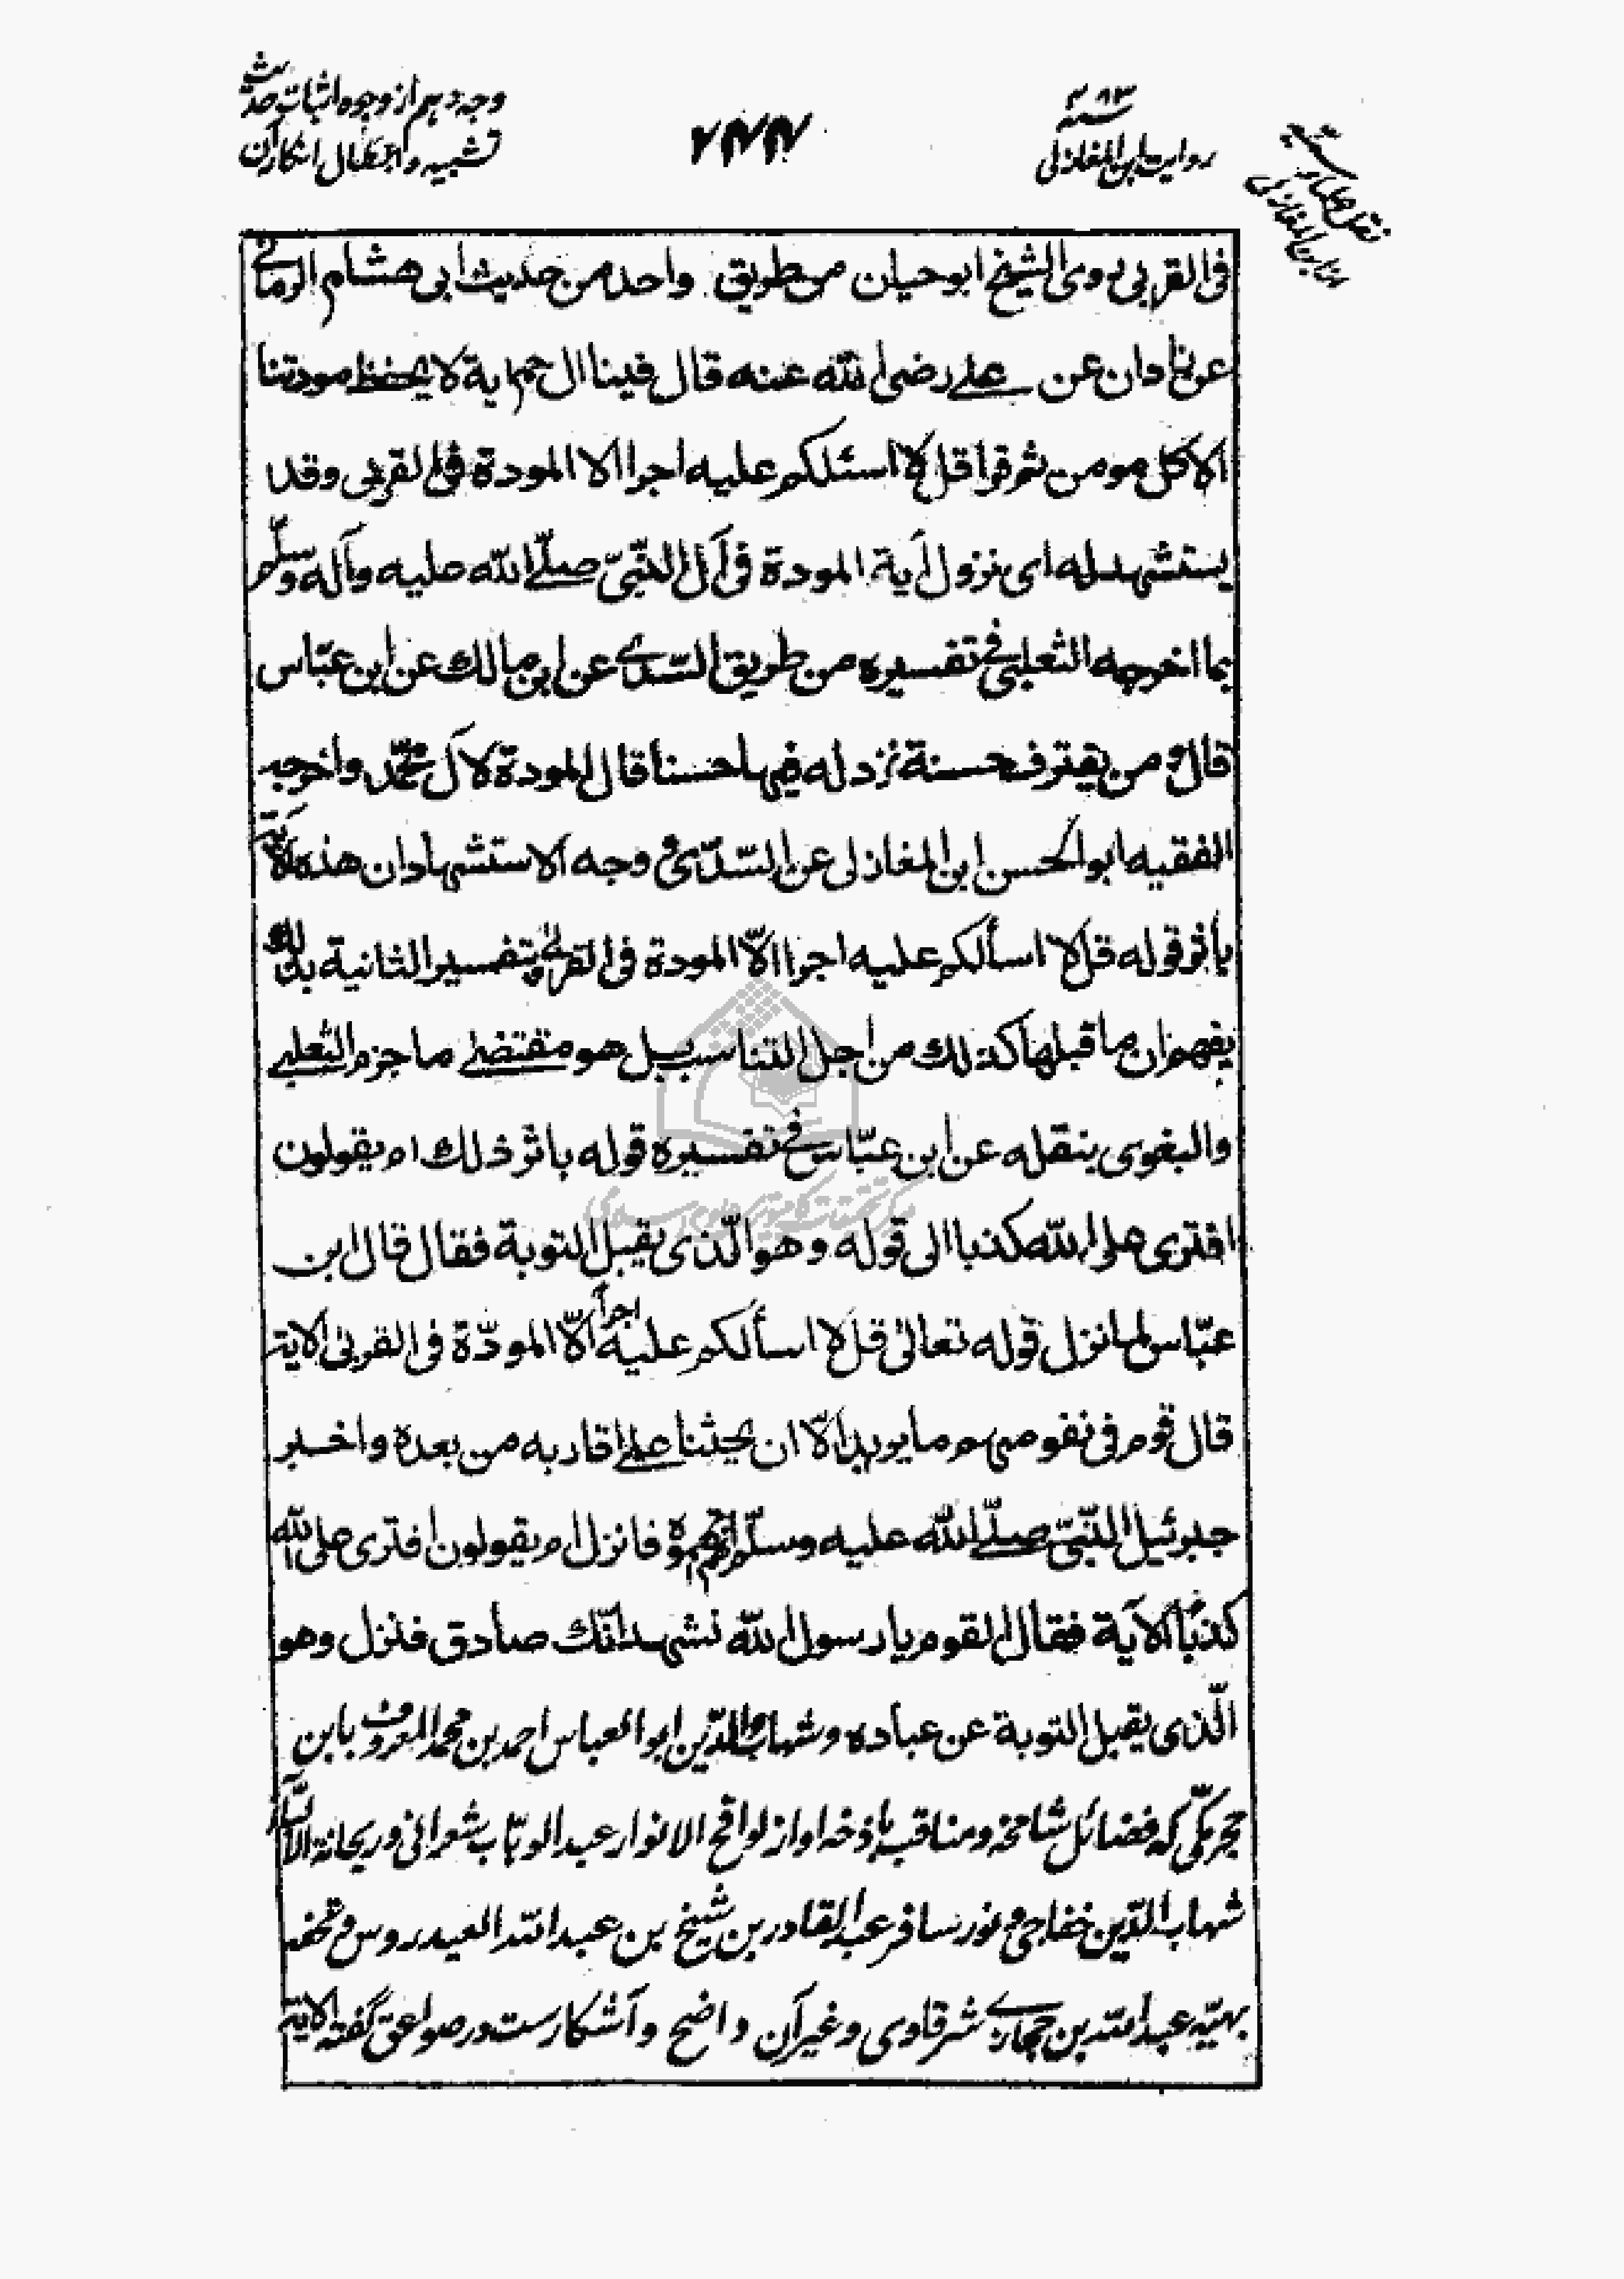 وجه دهم از وجوه اثبات حدیث
تشبیه و ابطال انکار آن
۲۷۷
۴۸۳
روایت ابن المغازلی
فی القربی روی الشیخ ابو حیان من طریق واحد من حدیث ابی هشام الرمانی
عن زاذان عن علی رضی الله عنه قال فینا ال حم ایة لا یحفظ مودتنا
الا کل مومن ثم قرا قل لا اسئلکم علیه اجرا الا المودة فی القربی وقد
یستشهد له ای نزول آیة المودة فی آل النّبیّ صلّی الله علیه وآله وسلّم
بما اخرجه الثعلبی فی تفسیره من طریق السّدی عن ابن مالک عن ابن عبّاس
قال و من یقترف حسنة نزد له فیها حسنا قال المودة لآل محمّد واخرجه
الفقیه ابو الحسن ابن المغازلی عن السّدّی و وجه الاستشهاد ان هذه الآیة
باثر قوله قل لا اسألکم علیه اجرا الّا المودة فی القربی وتفسیر الثانیة بذلک
یفهم ان ما قبلها کذلک من اجل التناسب بل هو مقتضی ما جزم الثعلبی
والبغوی بنقله عن ابن عبّاس فی تفسیره قوله باثر ذلک ام یقولون
افتری علی الله کذبا الی قوله وهو الّذی یقبل التوبة فقال قال ابن
عبّاس لما نزل قوله تعالیٰ قل لا اسألکم علیه اجراً الّا المودّة فی القربیٰ الآیة
قال قوم فی نفوسهم ما یرید الّا ان یحثنا علی اقاربه من بعده واخبر
جبرئیل النّبیّ صلّی الله علیه وسلّم انهم اتهموه فانزل ام یقولون افتری علی الله
کذبًا الآیة فقال القوم یا رسول الله نشهد انّک صادق فنزل وهو
الّذی یقبل التوبة عن عباده و شهاب الدّین ابو العباس احمد بن محمد المعروف بابن
حجر مکّی که فضائل شامخه و مناقب باذخه او از لواقح الانوار عبد الوهّاب شعرانی و ریحانة الالبّاء
شهاب الدّین خفاجی و نور سافر عبد القادر بن شیخ بن عبد الله العیدروس و تحفه
بهیّه عبد الله بن حجازی شرقاوی و غیر آن واضح و آشکارست در صواعق گفته الآیة